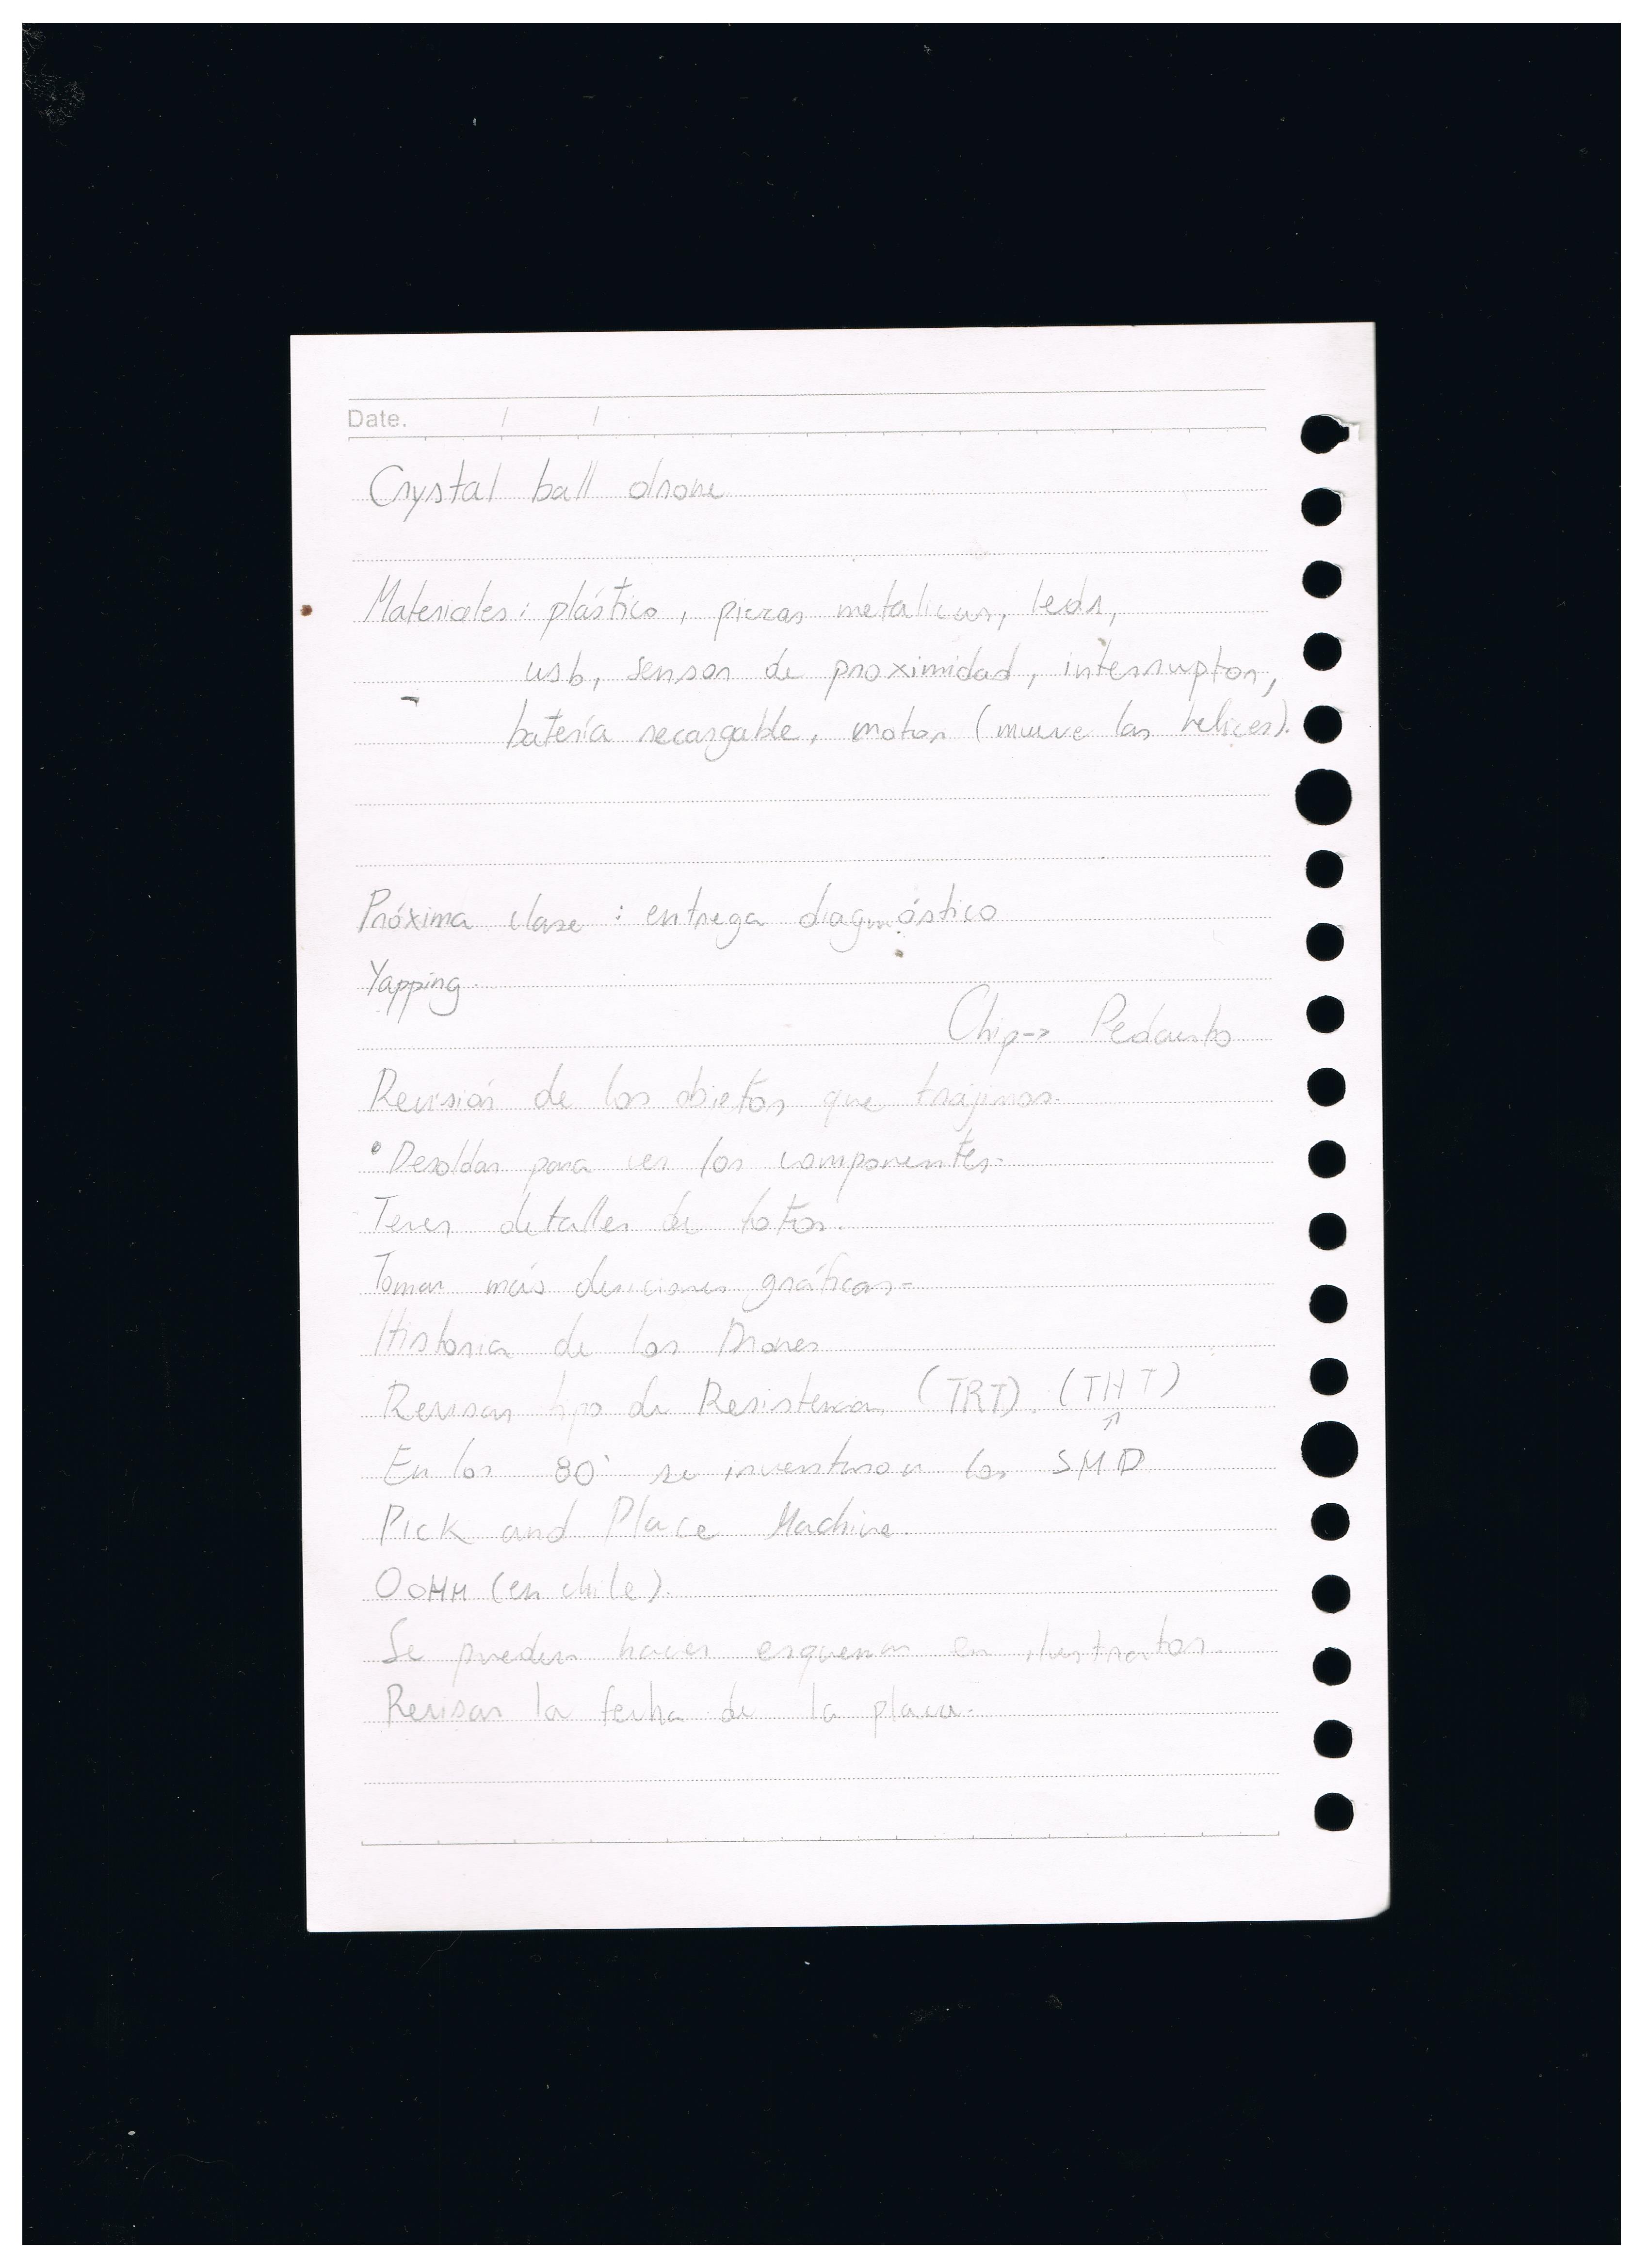 Date. / /
Crystal ball drone
Materiales: plástico, piezas metalicas, leds,
usb, sensor de proximidad, interruptor,
batería recargable, motor (mueve las helices).
Próxima clase: entrega diagnóstico
Yapping.
Chip->
Revisión de los objetos que trajimos.
• Desoldar para ver los componentes.
Tener detalles de fotos.
Tomar más desiciones gráficas-
Historia de los Drones
Revisar tipo de Resistencia (TRT). (THT)
↑
En los 80' se inventaron los SMD
Pick and Place Machine.
(en chile).
Se pueden hacer esquemas en ilustrator.
Revisar la fecha de la placa.